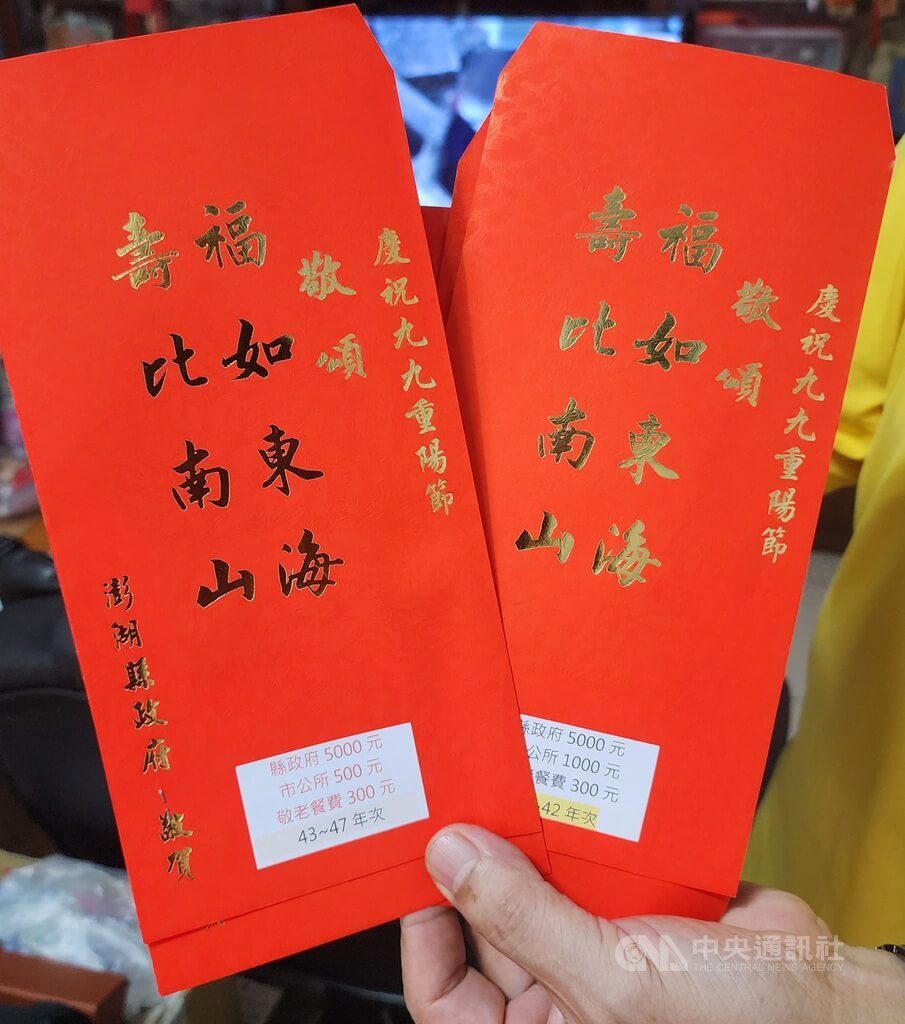 慶祝九九重陽節
敬頌
福如東海
壽比南山
澎湖縣政府敬賀
縣政府 5000 元
市公所 500 元
敬老餐費 300 元
43~47 年次
慶祝九九重陽節
敬頌
福如東海
壽比南山
縣政府 5000 元
公所 1000 元
餐費 300 元
~42 年次
中央通訊社
THE CENTRAL NEWS AGENCY